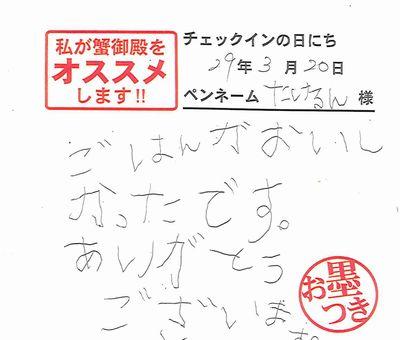 私が蟹御殿を
オススメ
します!!
チェックインの日にち
29年3月20日
ペンネーム たけるん 様
ごはんがおいし
かったです。
ありがとう
ございま
お墨つき